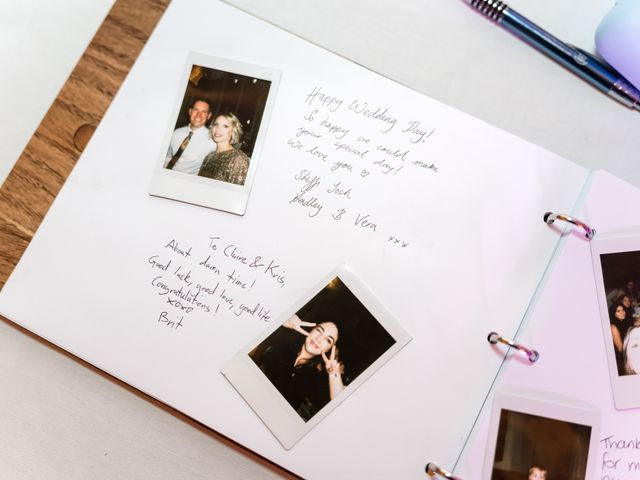 Happy Wedding Day!
So happy we could make
your special day!
We love you ♡
Steff, Josh
Bradley B Vera xxx
To Claire & Kris,
About damn time!
Good luck, good love, good life
Congratulations!
xoxo
Brit
Thank
for m